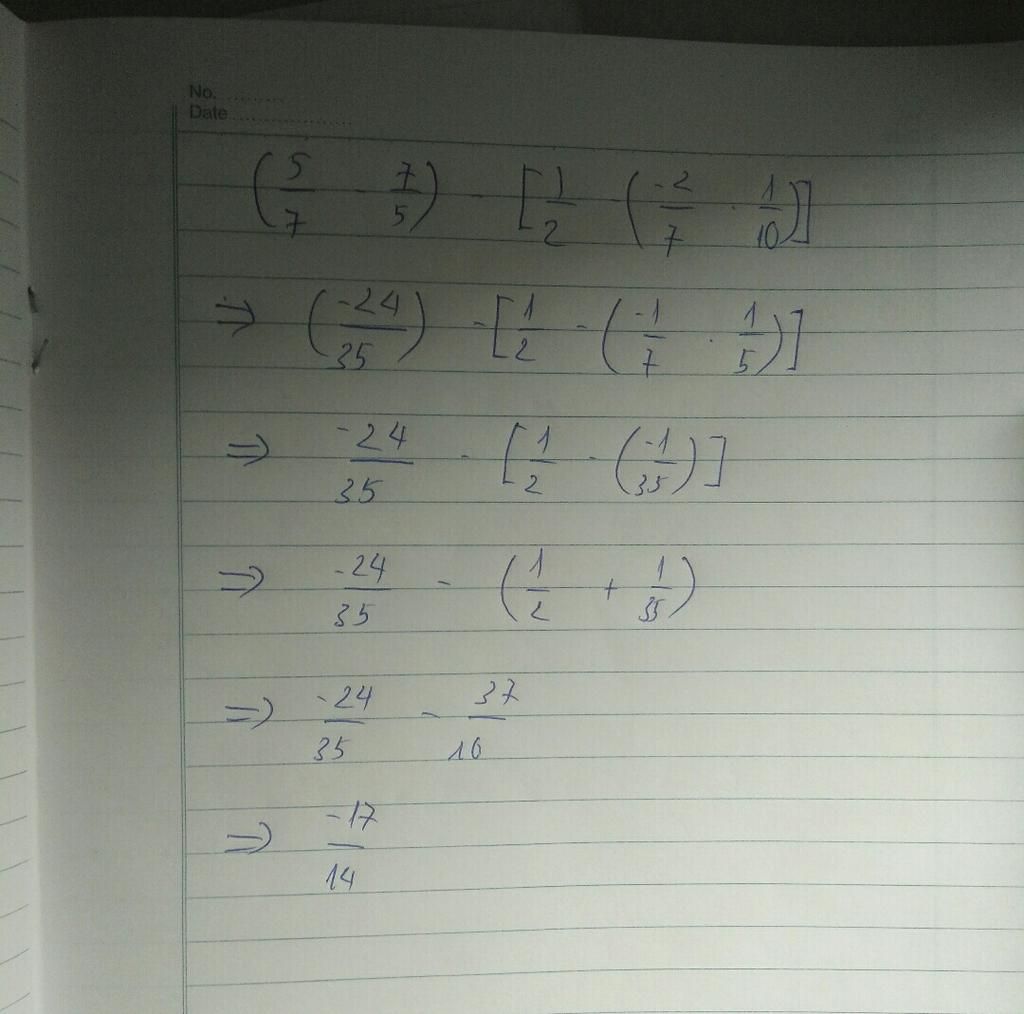 No. ..........
Date ....................
(5/7 - 7/5) - [1/2 - (-2/7 . 1/10)]
⇒ (-24/35) - [1/2 - (-1/7 . 1/5)]
⇒ -24/35 - [1/2 - (-1/35)]
⇒ -24/35 - (1/2 + 1/35)
⇒ -24/35 - 37/10
⇒ -17/14